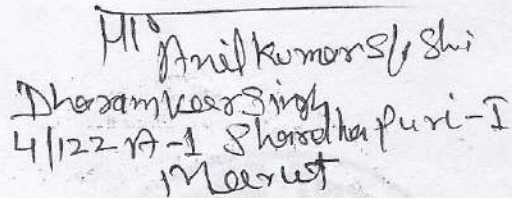 Mr Anil Kumar S/o Shri
Dharamveer Singh
4/122 A-1 Shardha Puri-I
Meerut